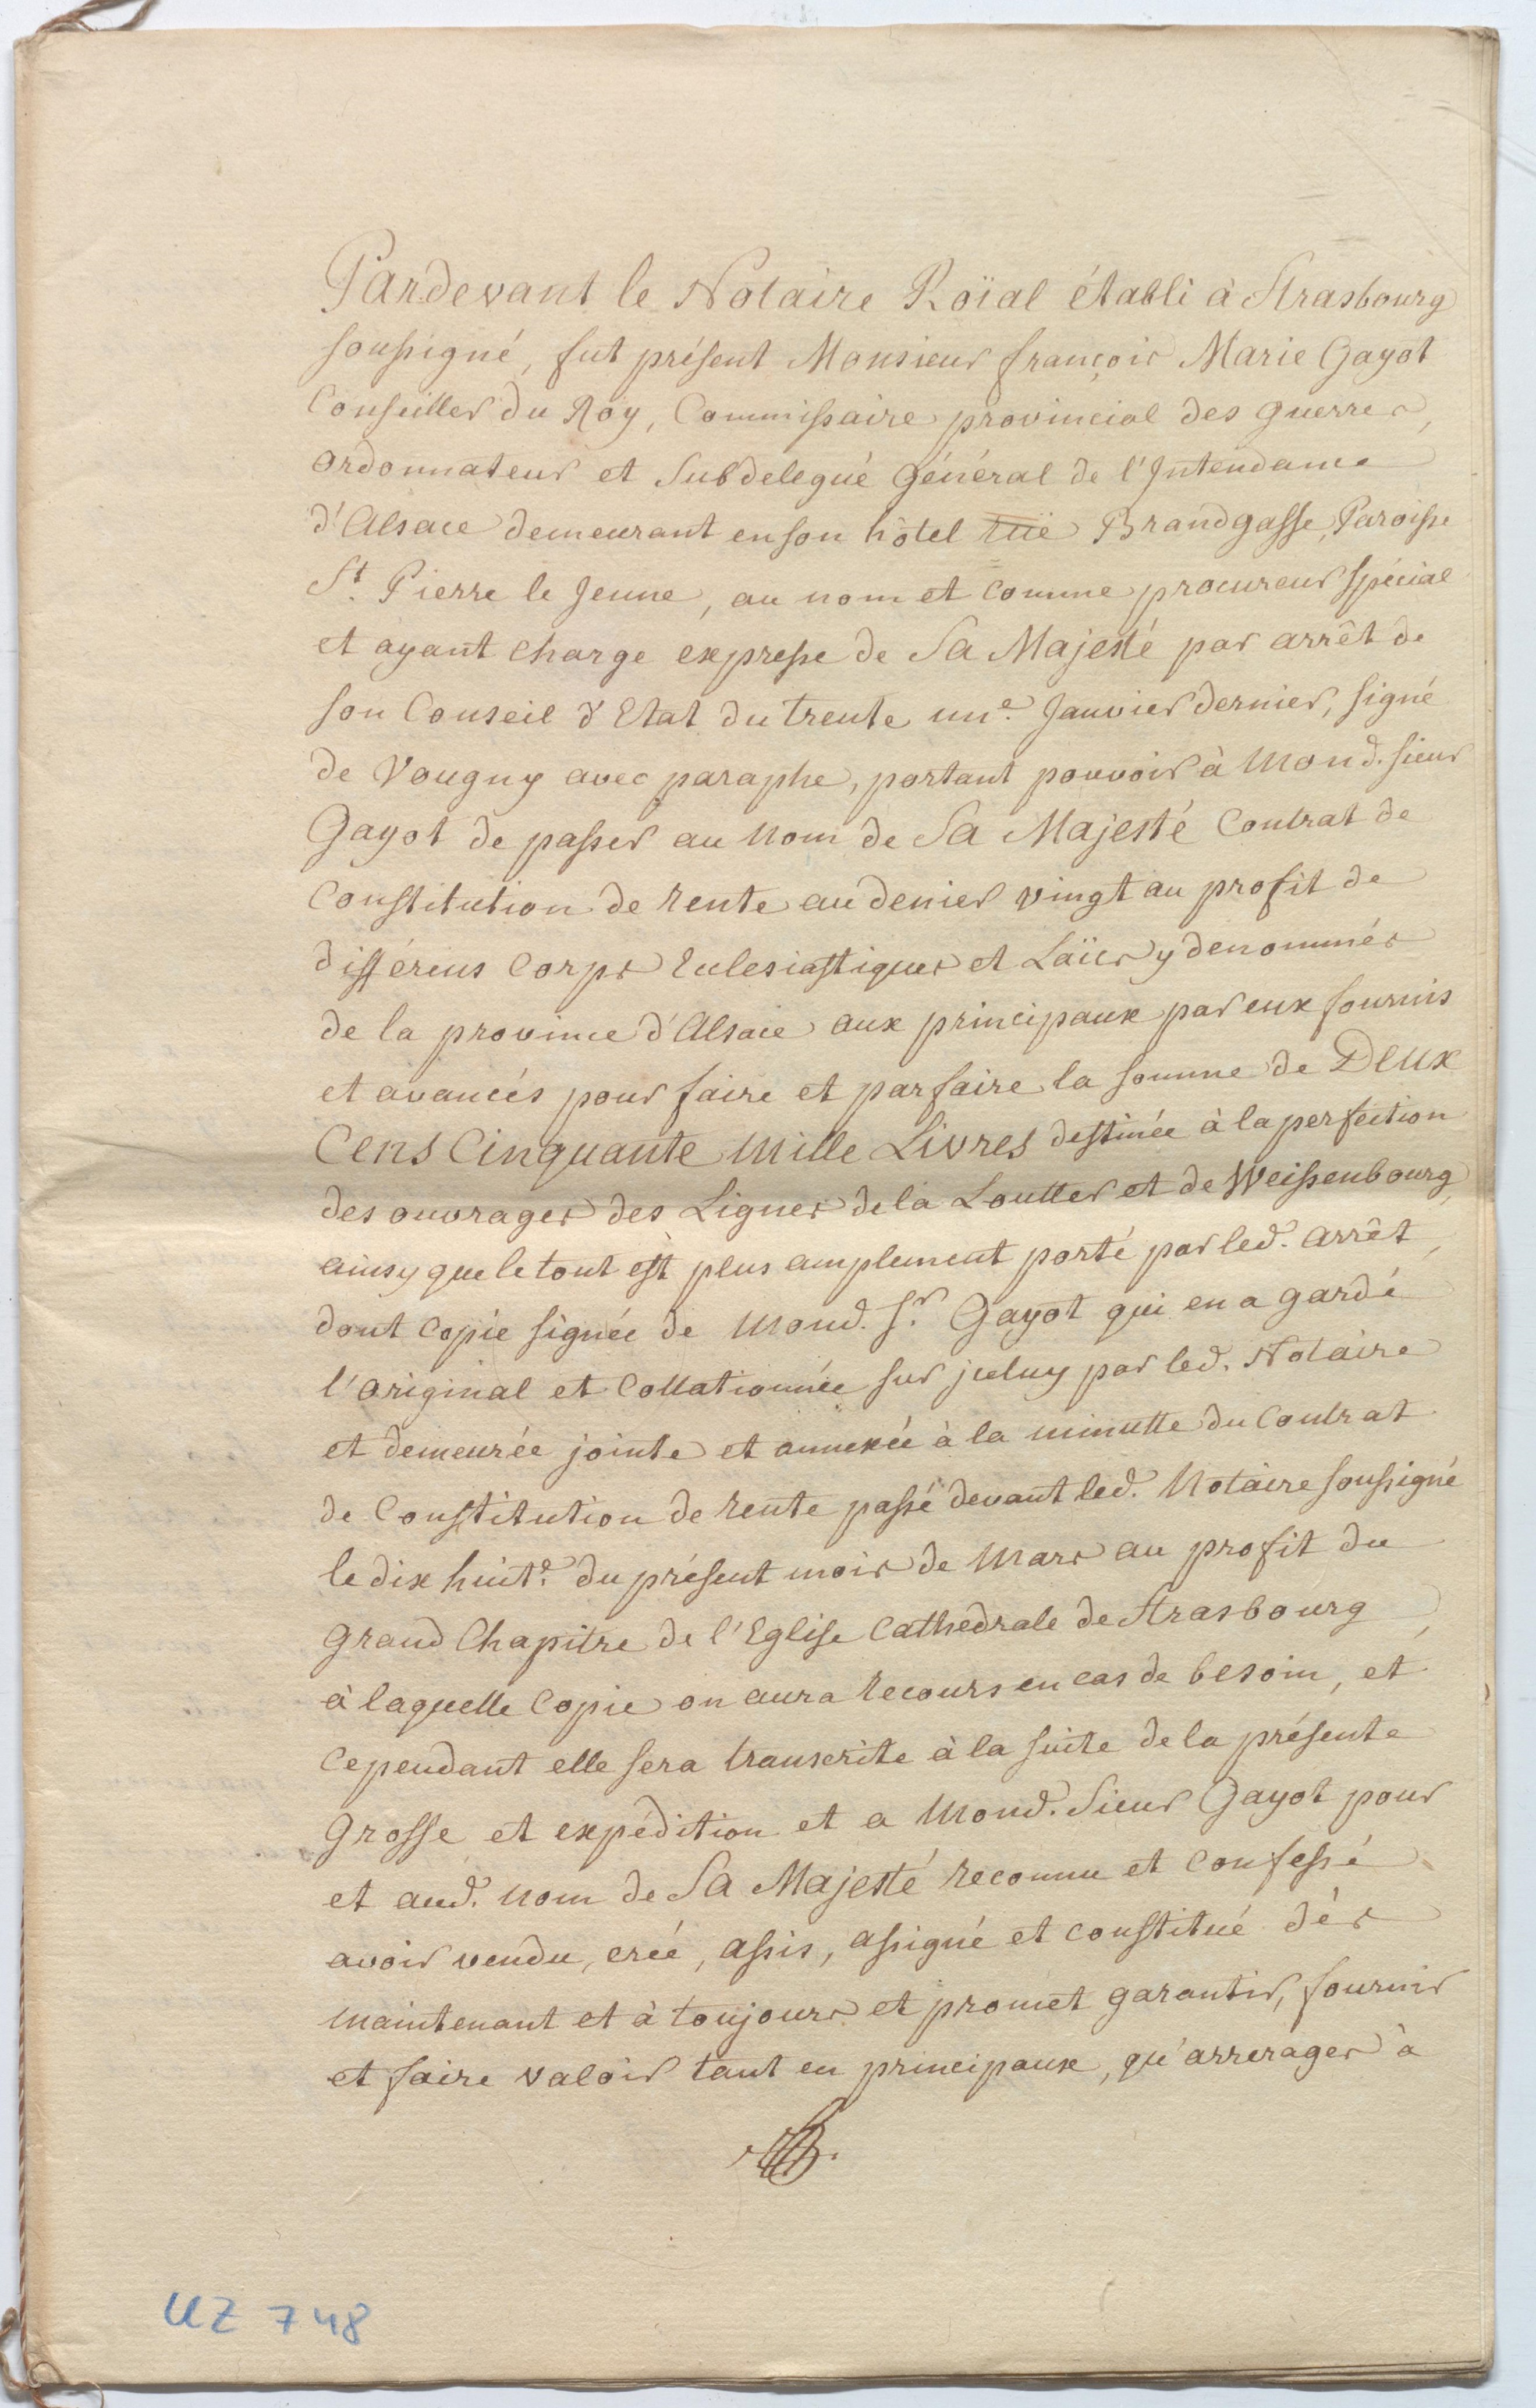 Pardevant le Notaire Roïal établi à Strasbourg
soussigné, fut présent Monsieur françois Marie Gayot
Conseiller du Roy, Commissaire provincial des guerres,
ordonnateur et Subdelegué Général de l'Intendance
d'Alsace demeurant en son hôtel ruë Brandgasse, Paroisse
St. Pierre le Jeune, au nom et comme procureur spécial
et ayant charge expresse de Sa Majesté par arrêt de
son Conseil d'Etat du trente une. Janvier dernier, signé
de Vougny avec paraphe, portant pouvoir à Mond. sieur
Gayot de passer au Nom de Sa Majesté Contrat de
Constitution de rente au denier vingt au profit de
différens Corps Eclesiastiques et Laïcs y denommés
de la province d'Alsace aux principaux par eux fournis
et avancés pour faire et parfaire la somme de Deux
Cens Cinquante Mille Livres destinée à la perfection
des ouvrages des Lignes de la Loutter et de Weissenbourg,
ainsy que le tout est plus amplement porté par led. arrêt,
dont Copie signée de Mond. Sr. Gayot qui en a gardé
l'original et Collationnée sur jceluy par led. Notaire
et demeurée jointe et annexée à la minutte du Contrat
de Constitution de rente passé devant led. Notaire soussigné
le dix huite. du présent mois de Mars au profit du
Grand Chapitre de l'Eglise Cathedrale de Strasbourg,
à laquelle Copie on aura recours en cas de besoin, et
Cependant elle sera transcrite à la suite de la présente
Grosse et expédition et a Mond. Sieur Gayot pour
et aud. Nom de Sa Majesté reconnu et Confessé
avoir vendu, creé, assis, assigné et constitué dés
Maintenant et à toujours et promet garantir, fournir
et faire valoir tant en principaux, qu'arrerages à
UZ 748